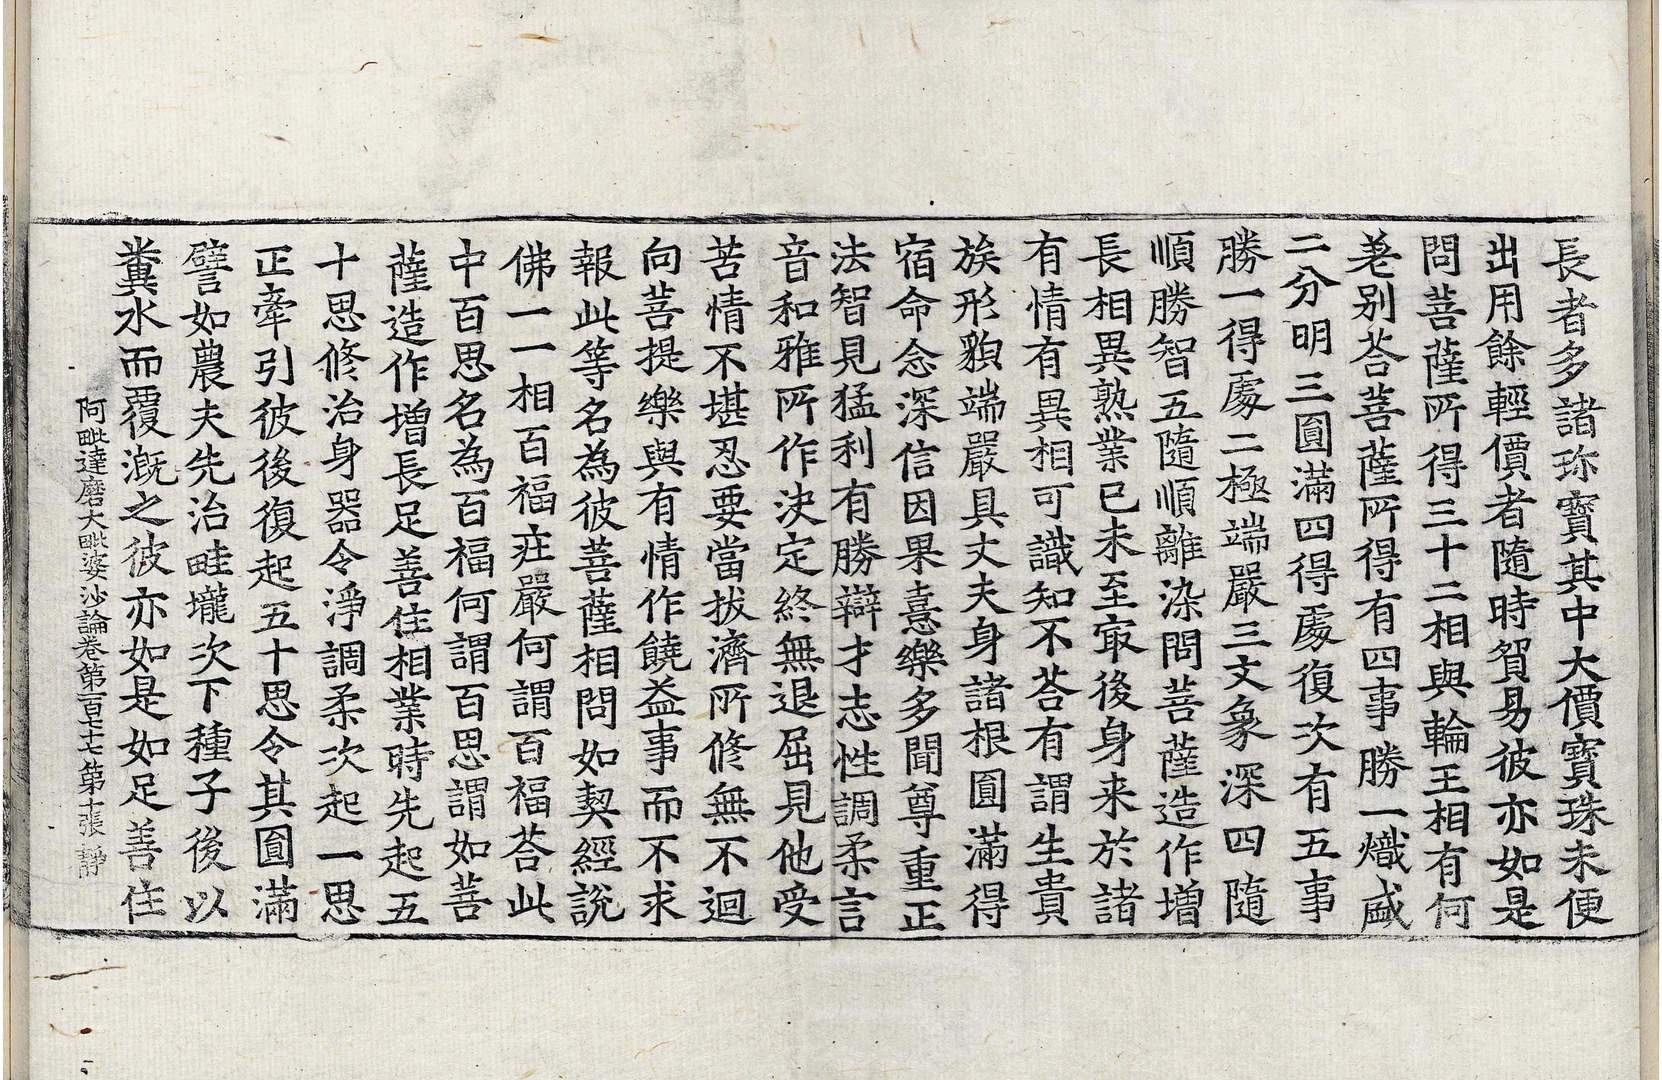 長者多諸珎寶其中大價寶珠未便
出用餘輕價者隨時貿易彼亦如是
問菩薩所得三十二相與輪王相有何
差别荅菩薩所得有四事勝一熾盛
二分明三圓滿四得處復次有五事
勝一得處二極端嚴三文象深四隨
順勝智五隨順離染問菩薩造作增
長相異熟業已未至㝡後身来於諸
有情有異相可識知不荅有謂生貴
族形貌端嚴具丈夫身諸根圓滿得
宿命念深信因果憙樂多聞尊重正
法智見猛利有勝辯才志性調柔言
音和雅所作決定終無退屈見他受
苦情不堪忍要當拔濟所修無不迴
向菩提樂與有情作饒益事而不求
報此等名為彼菩薩相問如契經說
佛一一相百福莊嚴何謂百福荅此
中百思名為百福何謂百思謂如菩
薩造作增長足善住相業時先起五
十思修治身器令淨調柔次起一思
正牽引彼後復起五十思令其圓滿
譬如農夫先治畦壠次下種子後以
糞水而覆溉之彼亦如是如足善住
阿毗達磨大毗婆沙論卷第一百七十七第十張 靜